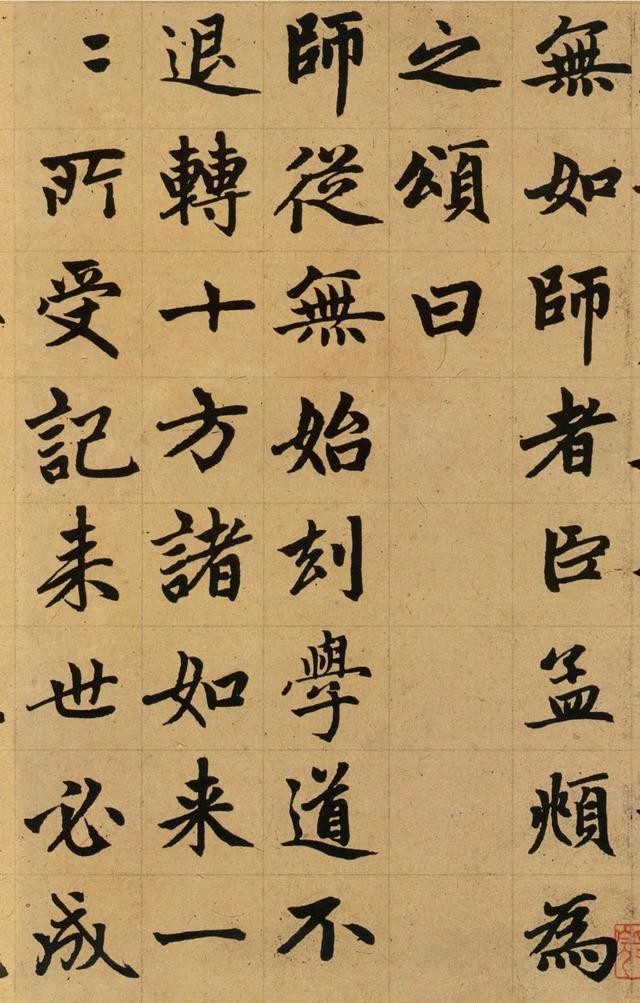 無如師者臣孟頫為
之頌曰
師從無始刼學道不
退轉十方諸如来一
〻所受記来世必成